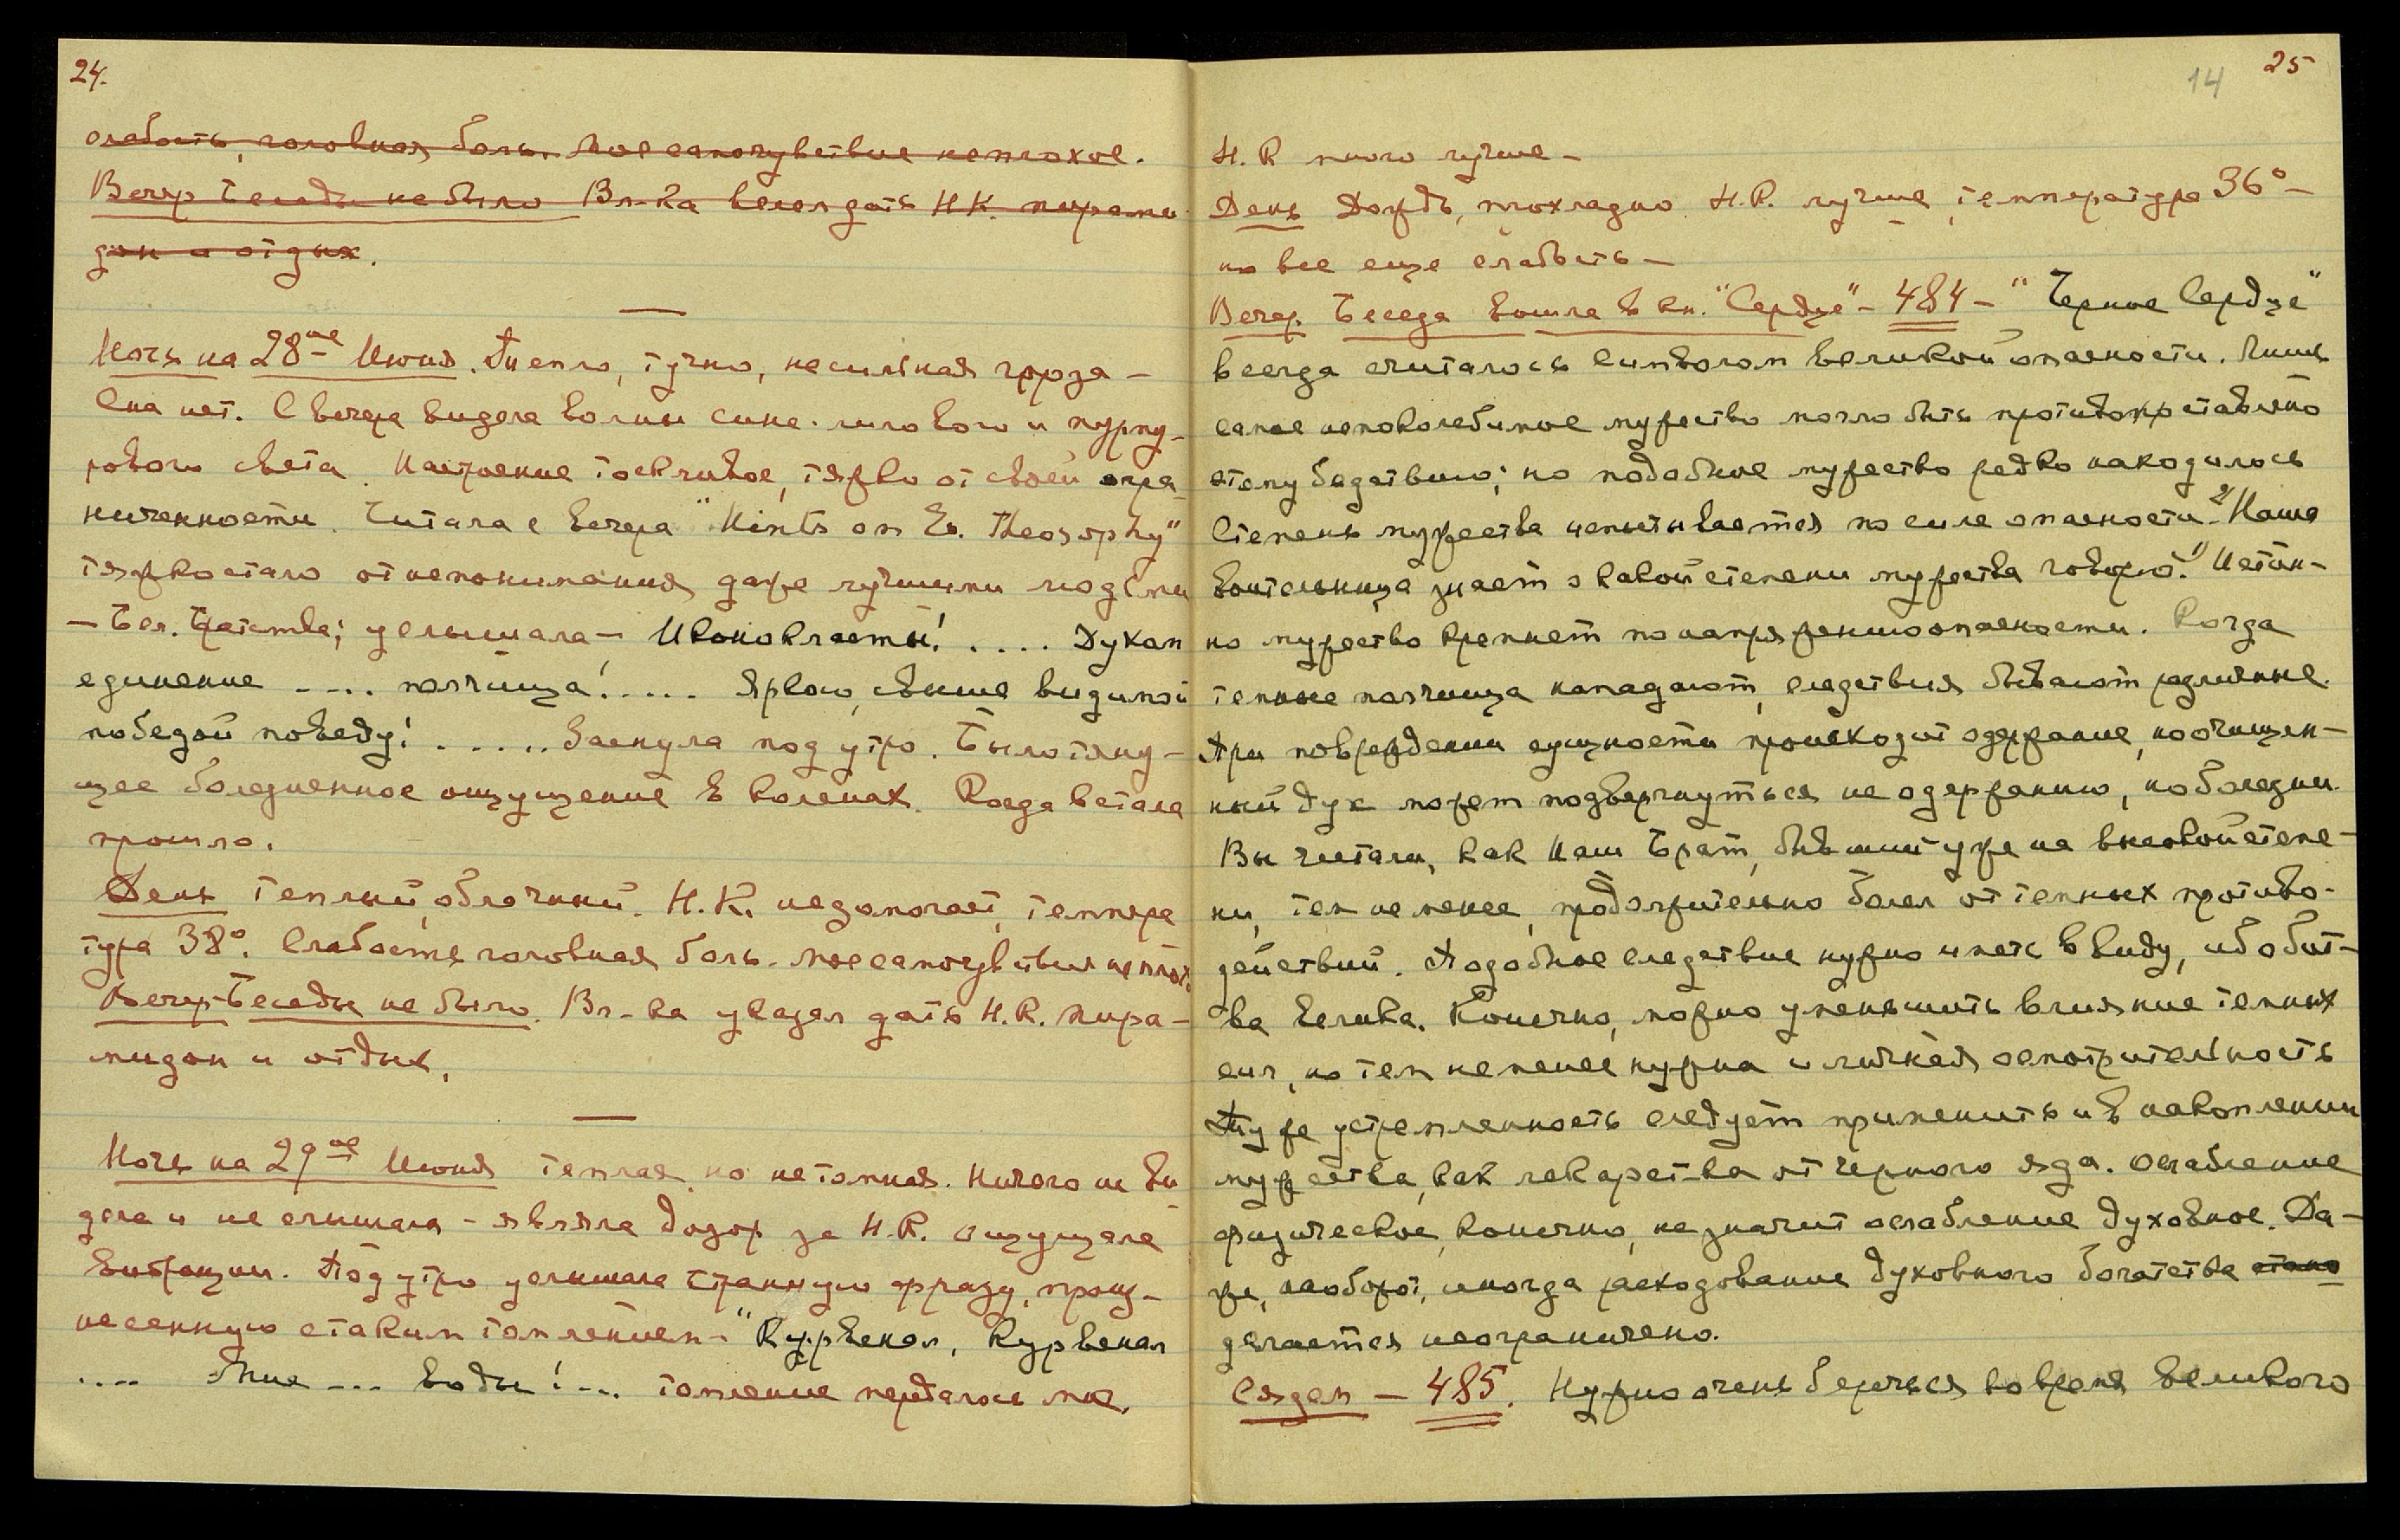 24.
слабость, головная боль. Мое самочувствие неплохое.
Вечер Беседы не было Вл-ка велел дать Н.К. пирами
дон и отдых.
Ночь на 28ое Июня. Тепло, тучно, несильная гроза –
Сна нет. С вечера видела волны сине-лилового и пурпу-
рового света. Настроение тоскливое, тяжко от своей огра-
ниченности. Читала с вечера "Hints on Es. Theosophy"
тяжко стало от непонимания даже лучшими людьми
– Бел. Братства; услышала – Иконокласты! .... Духан
единение .... полчища! ..... Ярко, свыше видимой
победой поведу! ...... Заснула под утро. Было тяну-
щее болезненное ощущение в коленах. Когда встала
прошло.
День теплый, облачный. Н.К. недомогает, темпера
тура 38°. Слабость головная боль. Мое самочувствие неплох.
Вечер-Беседы не было. Вл-ка указал дать Н.К. Пира-
мидон и отдых.
Ночь на 29ое Июня теплая, но не томная. Ничего не ви
дела и не слышала – являла дозор за Н.К. ощущала
вибрации. Под утро услышала странную фразу, произ-
несенную с таким томлением – "Курвенал, Курвенал
.... Мне ... воды! ... томление передалось мне.
14 25
Н.К много лучше –
День Дождь, прохладно Н.К. лучше, температура 36° –
но все еще слабость –
Вечер. Беседа вошла в кн. "Сердце" – 484 – "Черное Сердце"
всегда считалось символом великой опасности. Лишь
самое непоколебимое мужество могло быть противопоставлено
этому бедствию; но подобное мужество редко находилось
Степень мужества испытывается по силе опасности. 2) Наша
воительница знает о какой степени мужества говорю. 1) Истин-
но мужество крепнет по напряжению опасности. Когда
темные полчища нападают, следствия бывают различные.
При повреждении сущности происходит одержание, но очищен-
ный дух может подвергнуться не одержанию, но болезни.
Вы читали, как Наш Брат, бывший уже на высокой степе-
ни, тем не менее, продолжительно болел от темных противо-
действий. Подобное следствие нужно иметь в виду, ибо бит-
ва велика. Конечно, можно уменьшить влияние темных
сил, но тем не менее нужна и личная осмотрительность
Ту же устремленность следует применить и в накоплении
мужества, как лекарства от черного яда. Ослабление
физическое, конечно, не значит ослабление духовное. Да-
же, наоборот, иногда расходование духовного богатства стано
делается неограничено.
Сядем – 485. Нужно очень беречься во время великого